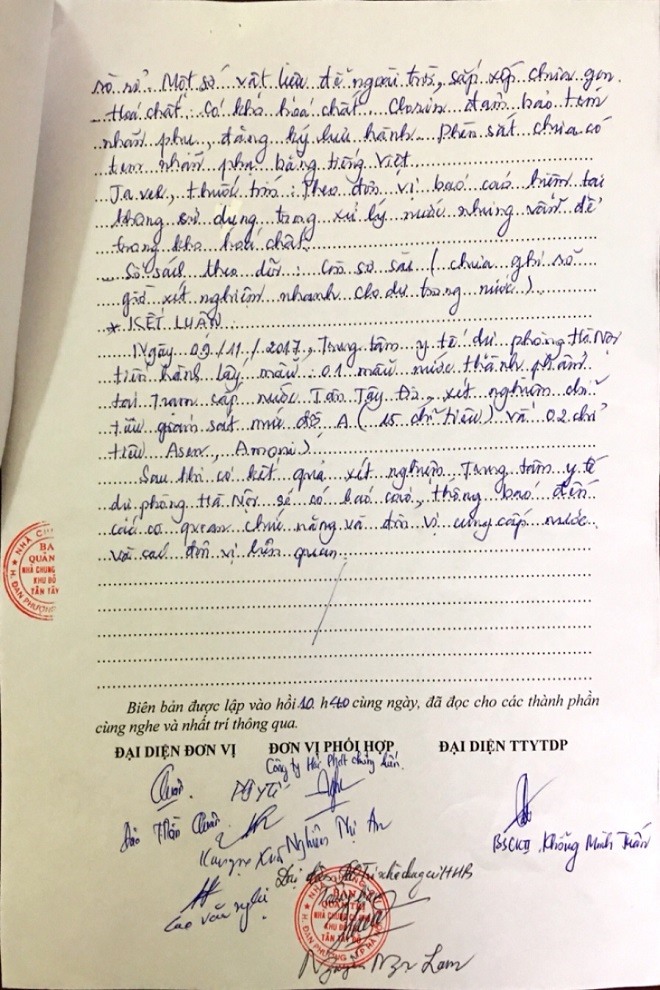 rò rỉ. Một số vật liệu để ngoài trời, sắp xếp chưa gọn.
Hoá chất: Có kho hóa chất. Clorin đảm bảo tem
nhãn phụ, đăng ký lưu hành. Phèn sắt chưa có
tem nhãn phụ bằng tiếng Việt.
Javel, thuốc tím: Theo đơn vị báo cáo hiện tại
không sử dụng trong xử lý nước nhưng vẫn để
trong kho hoá chất.
Sổ sách theo dõi: Còn sơ sài (chưa ghi rõ
giờ xét nghiệm nhanh clo dư trong nước).
* KẾT LUẬN:
Ngày 09/11/2017, Trung tâm y tế dự phòng Hà Nội
tiến hành lấy mẫu: 01 mẫu nước thành phẩm
tại Trạm cấp nước Tân Tây Đô, xét nghiệm chỉ
tiêu giám sát mức độ A (15 chỉ tiêu) và 02 chỉ
tiêu Asen, Amoni)
Sau khi có kết quả xét nghiệm Trung tâm y tế
dự phòng Hà Nội sẽ có báo cáo, thông báo đến
các cơ quan chức năng và đơn vị cung cấp nước
và các đơn vị liên quan.
Biên bản được lập vào hồi 10 h 40 cùng ngày, đã đọc cho các thành phần
cùng nghe và nhất trí thông qua.
ĐẠI DIỆN ĐƠN VỊ ĐƠN VỊ PHỐI HỢP ĐẠI DIỆN TTYTDP
Công ty Hải Phát chứng kiến
Đào Thần Nghiêm Thị An
BSCKII. Khổng Minh Tuấn
Cao Văn Nghị
BAN
QUẢN TRỊ
NHÀ CHUNG CƯ
KHU ĐÔ
TÂN TÂY ĐÔ
H. ĐAN PHƯỢNG
Lam